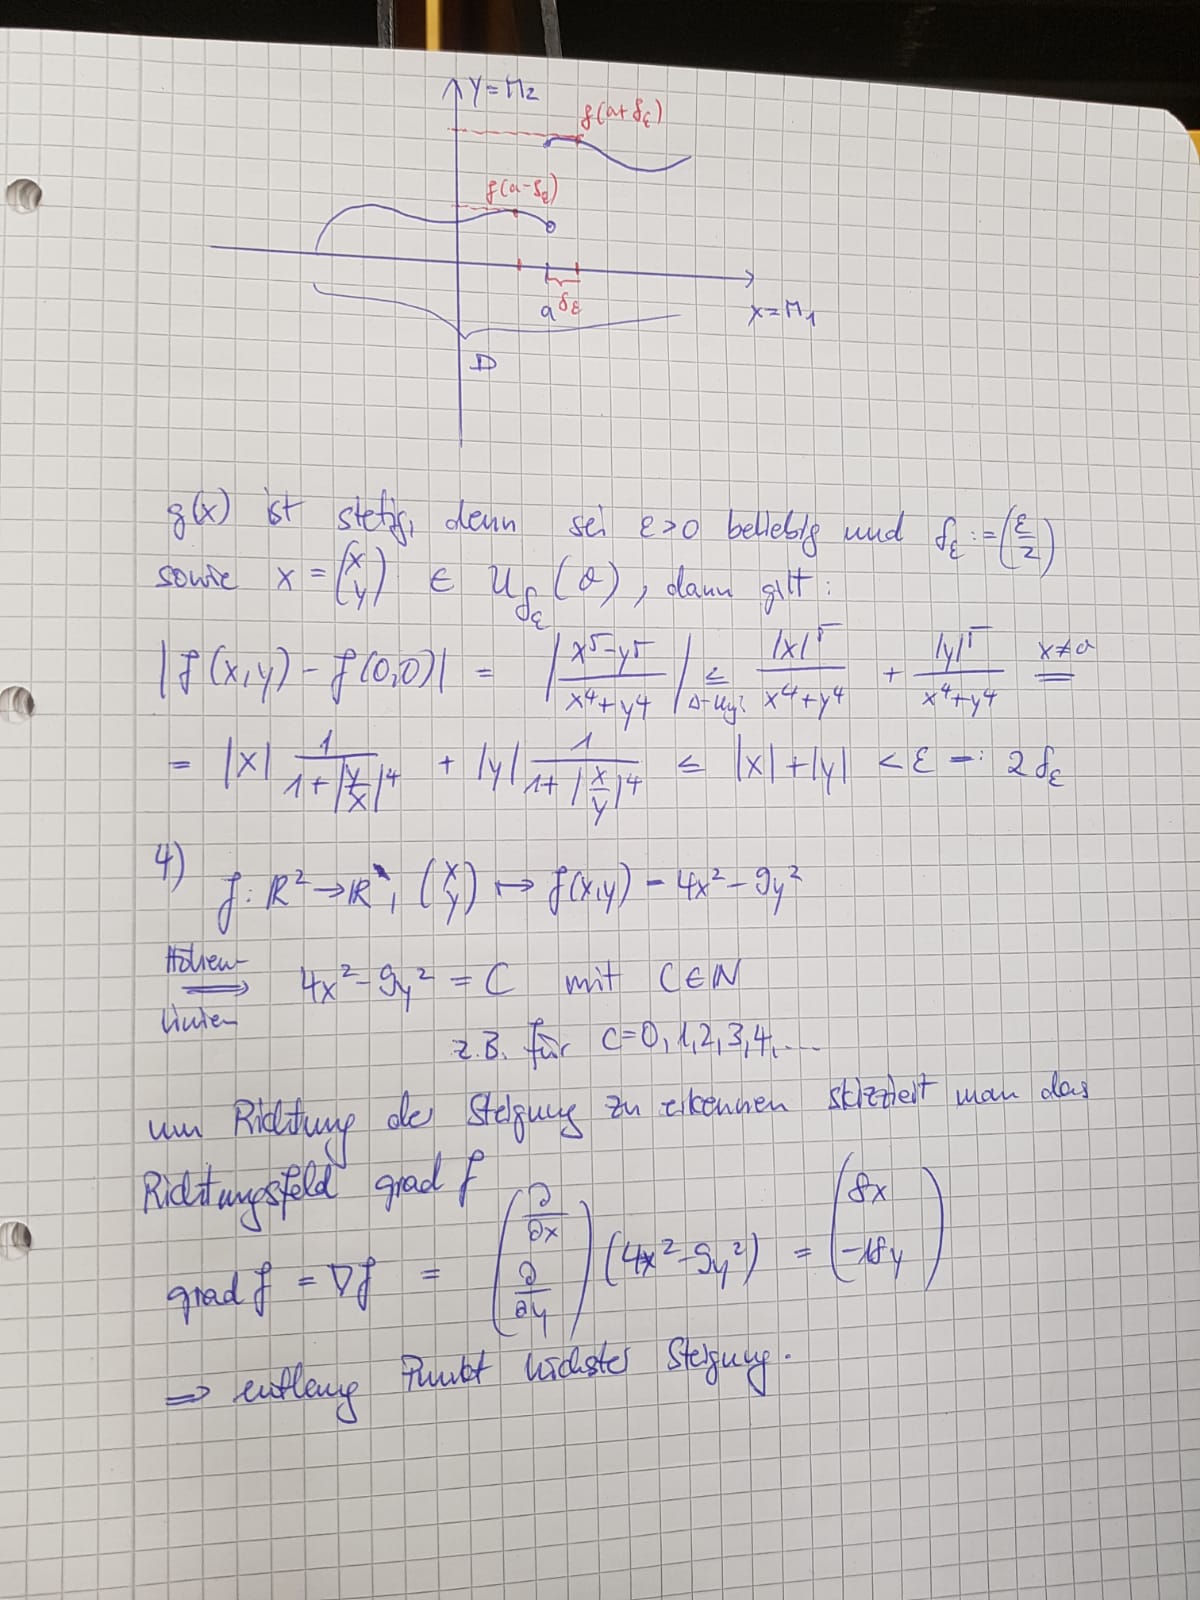 Y=M₂
f(a+δ_ε)
f(a-δ_ε)
a δ_ε
x=M₁
D
g(x) ist stetig, denn sei ε>0 beliebig und δ_ε := (ε/2)
sowie x = (x y) ∈ U_δ_ε (0), dann gilt:
|f(x,y) - f(0,0)| = |(x⁵-y⁵)/(x⁴+y⁴)| ≤ Δ-Ungl. |x|⁵/(x⁴+y⁴) + |y|⁵/(x⁴+y⁴) x≠0 =
= |x| 1/(1+|y/x|⁴) + |y| 1/(1+|x/y|⁴) ≤ |x|+|y| < ε =: 2δ_ε
4)
f: ℝ²→ℝ, (x y) ↦ f(x,y) = 4x²-9y²
Höhen-
⟹ 4x²-9y² = C mit C∈ℕ
linien
z.B. für C=0,1,2,3,4,....
um Richtung der Steigung zu erkennen skizziert man das
Richtungsfeld grad f
grad f = ∇f = (∂/∂x ∂/∂y) (4x²-9y²) = (8x -18y)
⟹ entlang Punkt höchster Steigung.